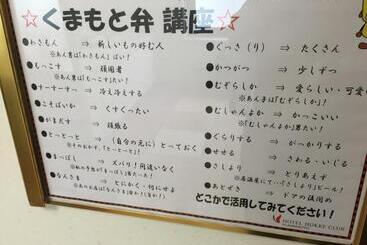 ☆くまもと弁 講座☆
●わさもん ⇒ 新しいもの好む人
※あん男は「わさもん」ばい!
●もっこす ⇒ 頑固者
※あん男は「もっこす」たい!
●すーすーすー ⇒ 冷え冷えする
●こそばいか ⇒ くすぐったい
●がまだす ⇒ 頑張る
●とっとっと ⇒ (自分の元に)とっておく
●まっぽし ⇒ ズバリ!間違いなく
●なんさま ⇒ とにかく・何にせよ
●ぐっさ(り) ⇒ たくさん
●かつがつ ⇒ 少しずつ
●むぞらしか ⇒ 愛らしい・可愛
※あん子は「むぞらしか」!
●むしゃんよか ⇒ かっこいい
※「むしゃんよか」男たい!
●ぐらりする ⇒ がっかりする
●せせる ⇒ さわる・いじる
●さしより ⇒ とりあえず
※居酒屋にて・・「さしより」ビール!
●あとぜき ⇒ ドアの後閉め
どこかで活用してみてください!
HOTEL HOKKE CLUB